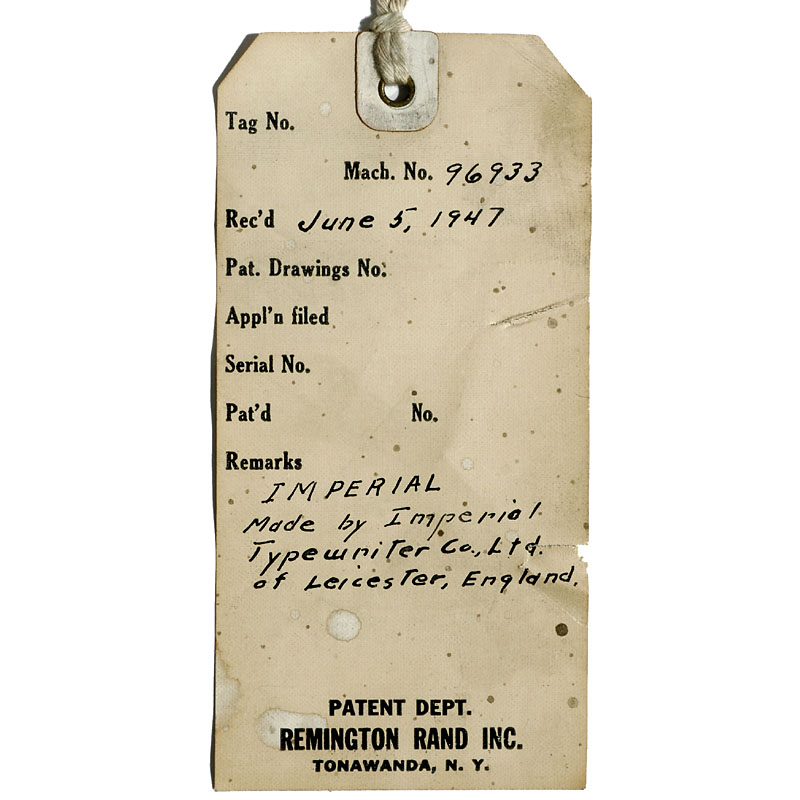 Tag No.
Mach. No. 96933
Rec'd June 5, 1947
Pat. Drawings No.
Appl'n filed
Serial No.
Pat'd No.
Remarks
IMPERIAL
Made by Imperial
Typewriter Co., Ltd.
of Leicester, England.
PATENT DEPT.
REMINGTON RAND INC.
TONAWANDA, N. Y.